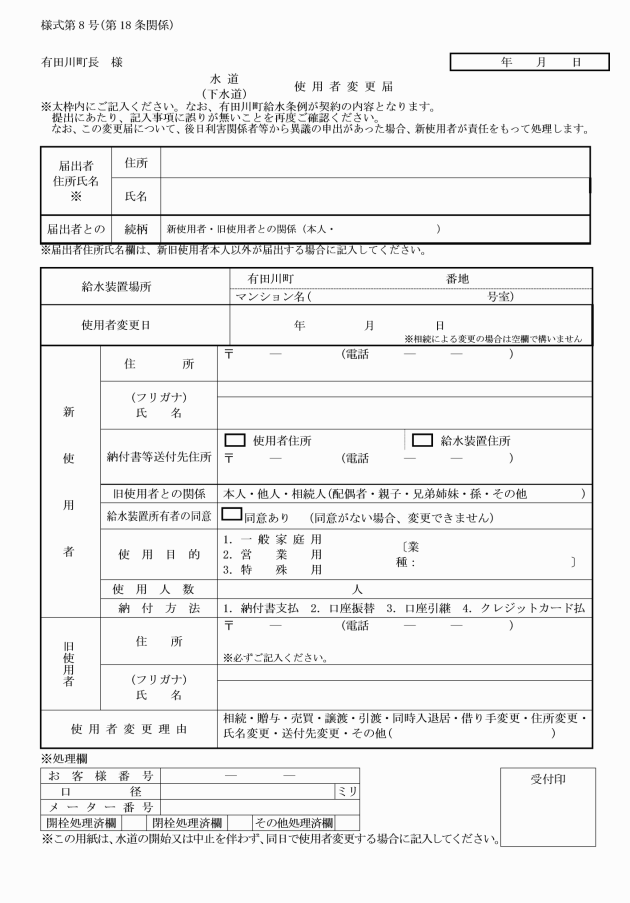 様式第8号(第18条関係)
有田川町長　様
年　　月　　日
水 道
(下水道)　使 用 者 変 更 届
※太枠内にご記入ください。なお、有田川町給水条例が契約の内容となります。
提出にあたり、記入事項に誤りが無いことを再度ご確認ください。
なお、この変更届について、後日利害関係者等から異議の申出があった場合、新使用者が責任をもって処理します。
届出者
住所氏名
※
住所
氏名
届出者との　続柄　新使用者・旧使用者との関係（本人・　　　　　　　　　　）
※届出者住所氏名欄は、新旧使用者本人以外が届出する場合に記入してください。
給水装置場所
有田川町　　　　　　　　　　　　　番地
マンション名(　　　　　　　　　　　　　　　号室)
使用者変更日　　年　　　　　月　　　　　日
※相続による変更の場合は空欄で構いません
新使用者
住　　　所
〒　　―　　　　　(電話　　　―　　　―　　　　)
(フリガナ)
氏　　名
納付書等送付先住所
使用者住所　　給水装置住所
〒　　―　　　　　(電話　　　―　　　―　　　　)
旧使用者との関係　本人・他人・相続人(配偶者・親子・兄弟姉妹・孫・その他　　　　　)
給水装置所有者の同意　同意あり　(同意がない場合、変更できません)
使 用 目 的
1. 一 般 家 庭 用
2. 営　　業　　用
3. 特　　殊　　用
〔業
種：　　　　　　　　　　　　　〕
使 用 人 数　　人
納 付 方 法　1. 納付書支払　2. 口座振替　3. 口座引継　4. クレジットカード払
旧使用者
住　　所
〒　　―　　　　　(電話　　　―　　　―　　　　)
※必ずご記入ください。
(フリガナ)
氏　　名
使 用 者 変 更 理 由
相続・贈与・売買・譲渡・引渡・同時入退居・借り手変更・住所変更・
氏名変更・送付先変更・その他(　　　　　　　　　　　　　)
※処理欄
お 客 様 番 号　　―　　　　―
口　　　　　径　　ミリ
メ ー タ ー 番 号
開栓処理済欄　閉栓処理済欄　その他処理済欄
受付印
※この用紙は、水道の開始又は中止を伴わず、同日で使用者変更する場合に記入してください。